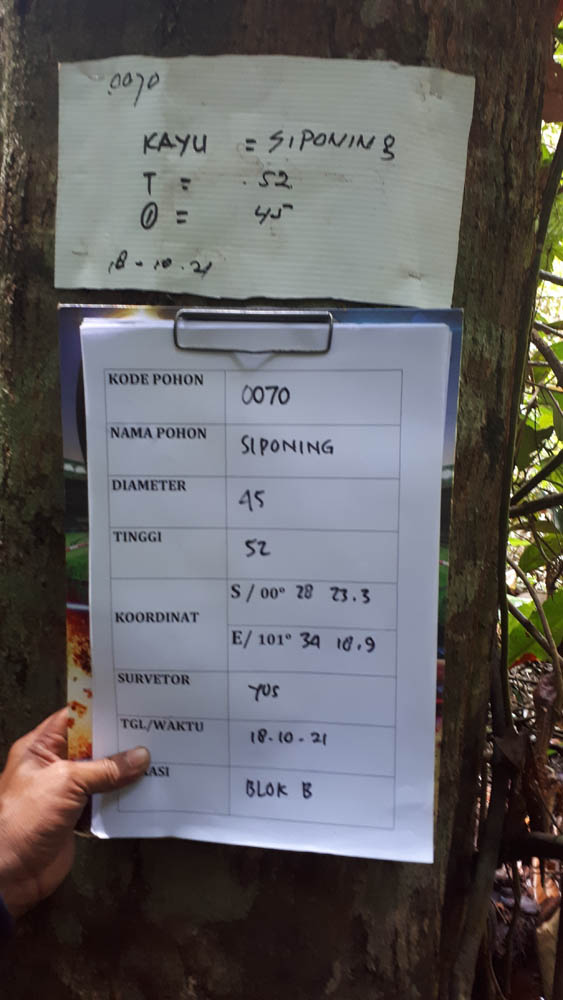 0070
KAYU = SIPONING
T = 52
Ø = 45
18-10.21
KODE POHON 0070
NAMA POHON SIPONING
DIAMETER 45
TINGGI 52
KOORDINAT
S / 00° 28 23.3
E/ 101° 34 18.9
SURVETOR YUS
TGL/WAKTU 18-10-21
ASI BLOK B